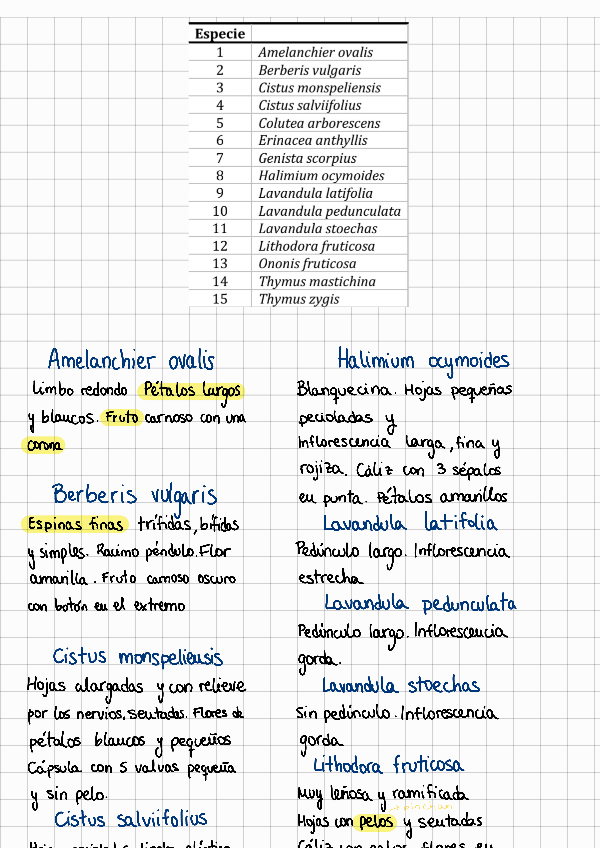 Especie
1 Amelanchier ovalis
2 Berberis vulgaris
3 Cistus monspeliensis
4 Cistus salviifolius
5 Colutea arborescens
6 Erinacea anthyllis
7 Genista scorpius
8 Halimium ocymoides
9 Lavandula latifolia
10 Lavandula pedunculata
11 Lavandula stoechas
12 Lithodora fruticosa
13 Ononis fruticosa
14 Thymus mastichina
15 Thymus zygis
Amelanchier ovalis
Limbo redondo Pétalos largos
y blancos. Fruto carnoso con una
corona
Berberis vulgaris
Espinas finas trífidas, bífidas
y simples. Racimo péndulo. Flor
amarilla. Fruto carnoso oscuro
con botón en el extremo
Cistus monspeliensis
Hojas alargadas y con relieve
por los nervios, sentadas. Flores de
pétalos blancos y pequeños
Cápsula con 5 valvas pequeña
y sin pelo.
Cistus salviifolius
Halimium ocymoides
Blanquecina. Hojas pequeñas
pecioladas y
Inflorescencia larga, fina y
rojiza. Cáliz con 3 sépalos
en punta. Pétalos amarillos
Lavandula latifolia
Pedúnculo largo. Inflorescencia
estrecha
Lavandula pedunculata
Pedúnculo largo. Inflorescencia
gorda.
Lavandula stoechas
Sin pedúnculo. Inflorescencia
gorda
Lithodora fruticosa
Muy leñosa y ramificada
Hojas con pelos y sentadas